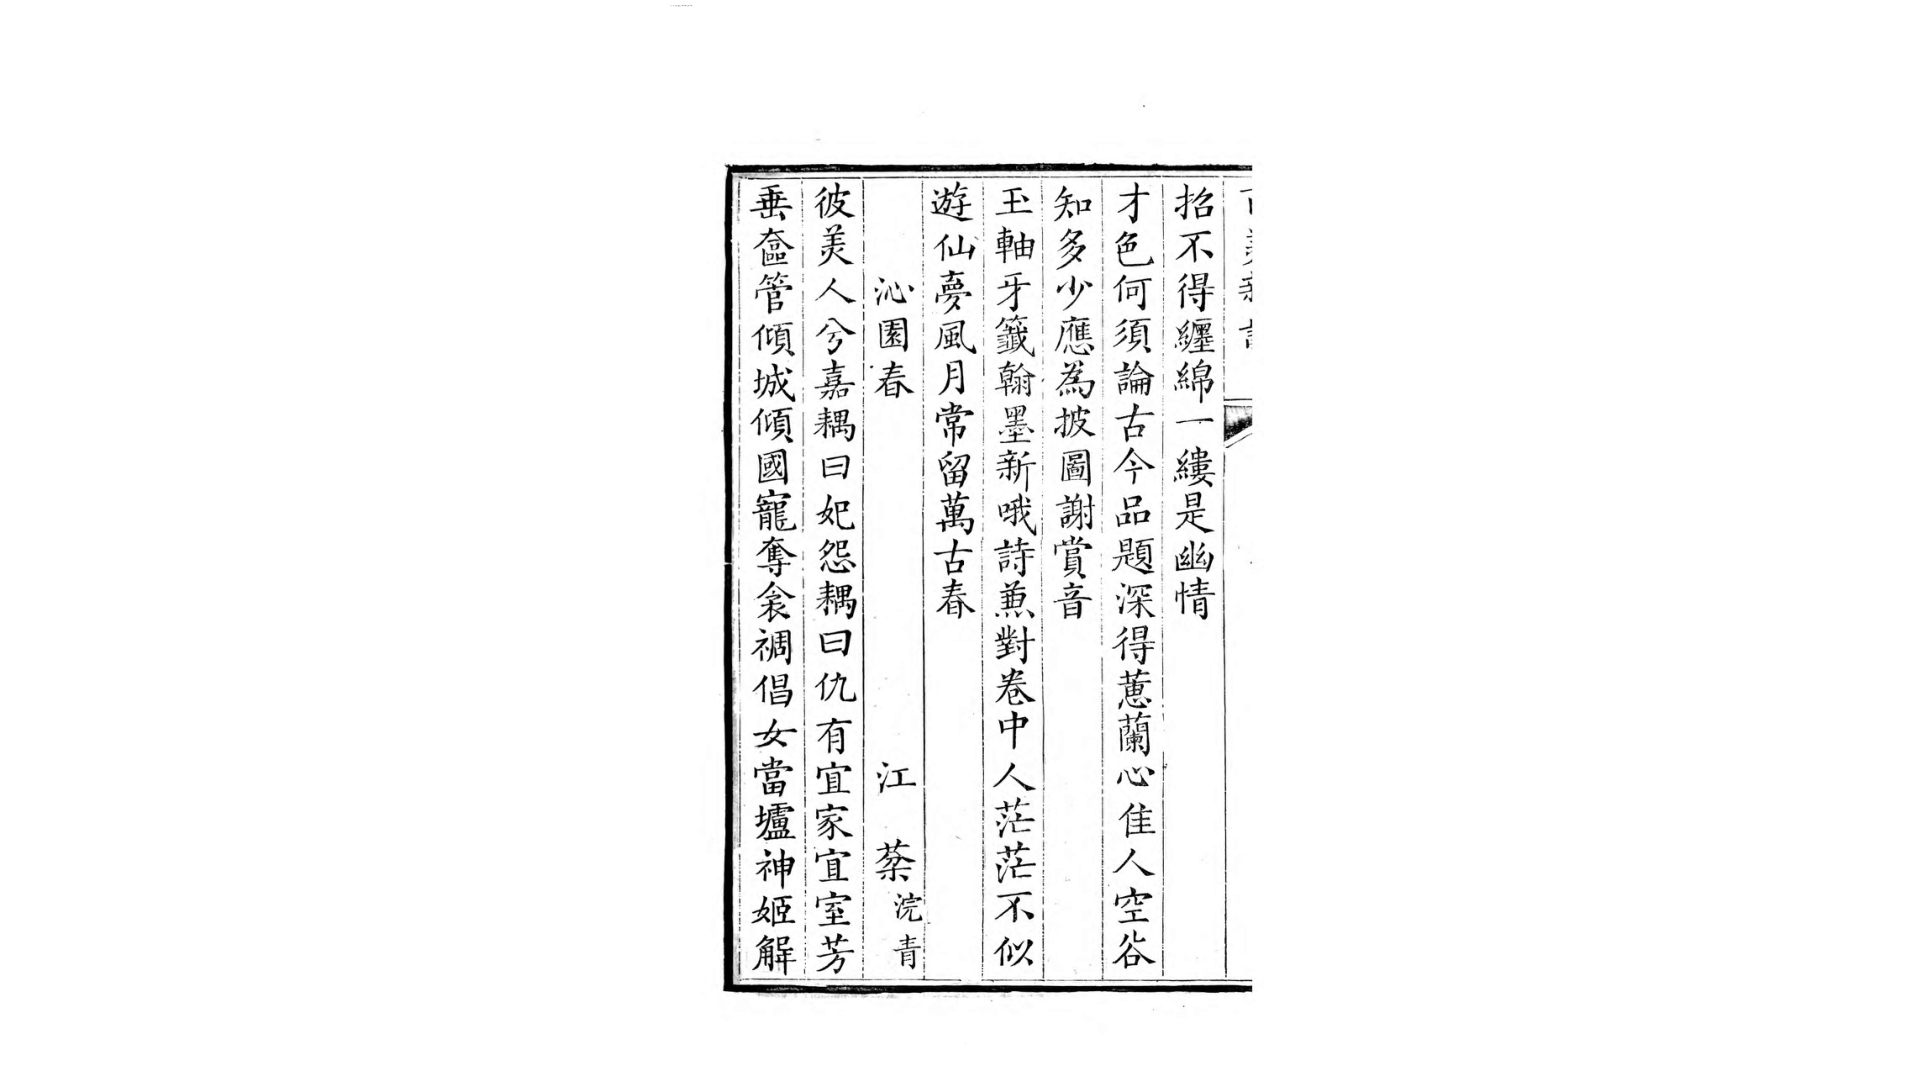 招不得纏綿一縷是幽情
才色何須論古今品題深得蕙蘭心佳人空谷
知多少應為披圖謝賞音
玉軸牙籤翰墨新哦詩兼對卷中人茫茫不似
遊仙夢風月常留萬古春
沁園春 江 棻 浣青
彼美人兮嘉耦曰妃怨耦曰仇有宜家宜室芳
垂奩管傾城傾國寵奪衾裯倡女當壚神姬解